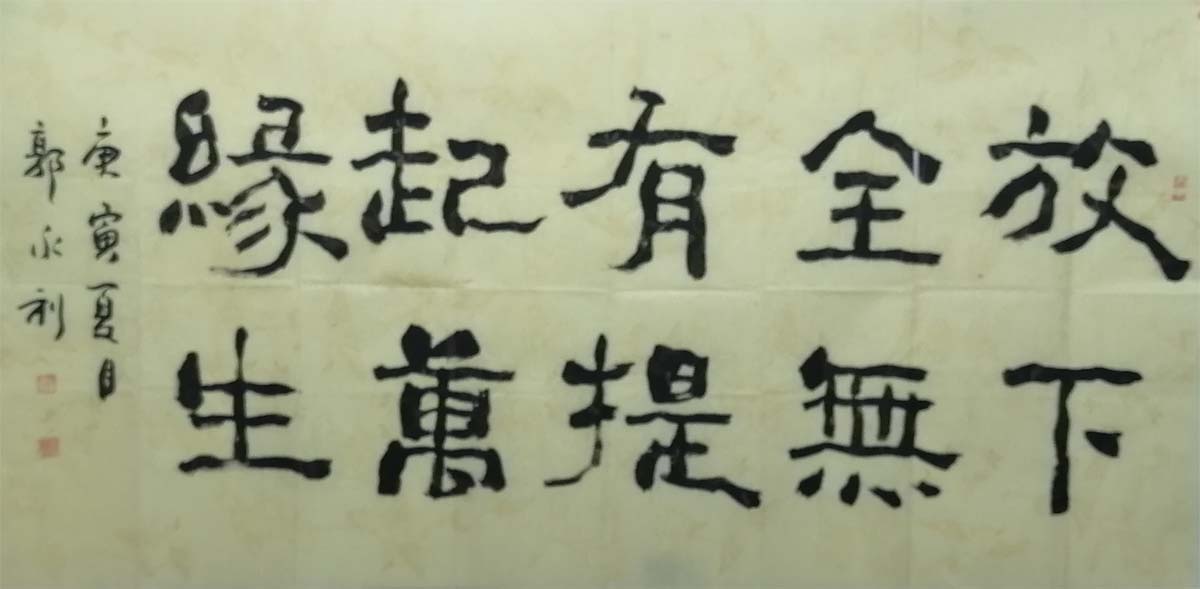 放下
全無
有提
起萬
緣生
庚寅夏日
郭永利